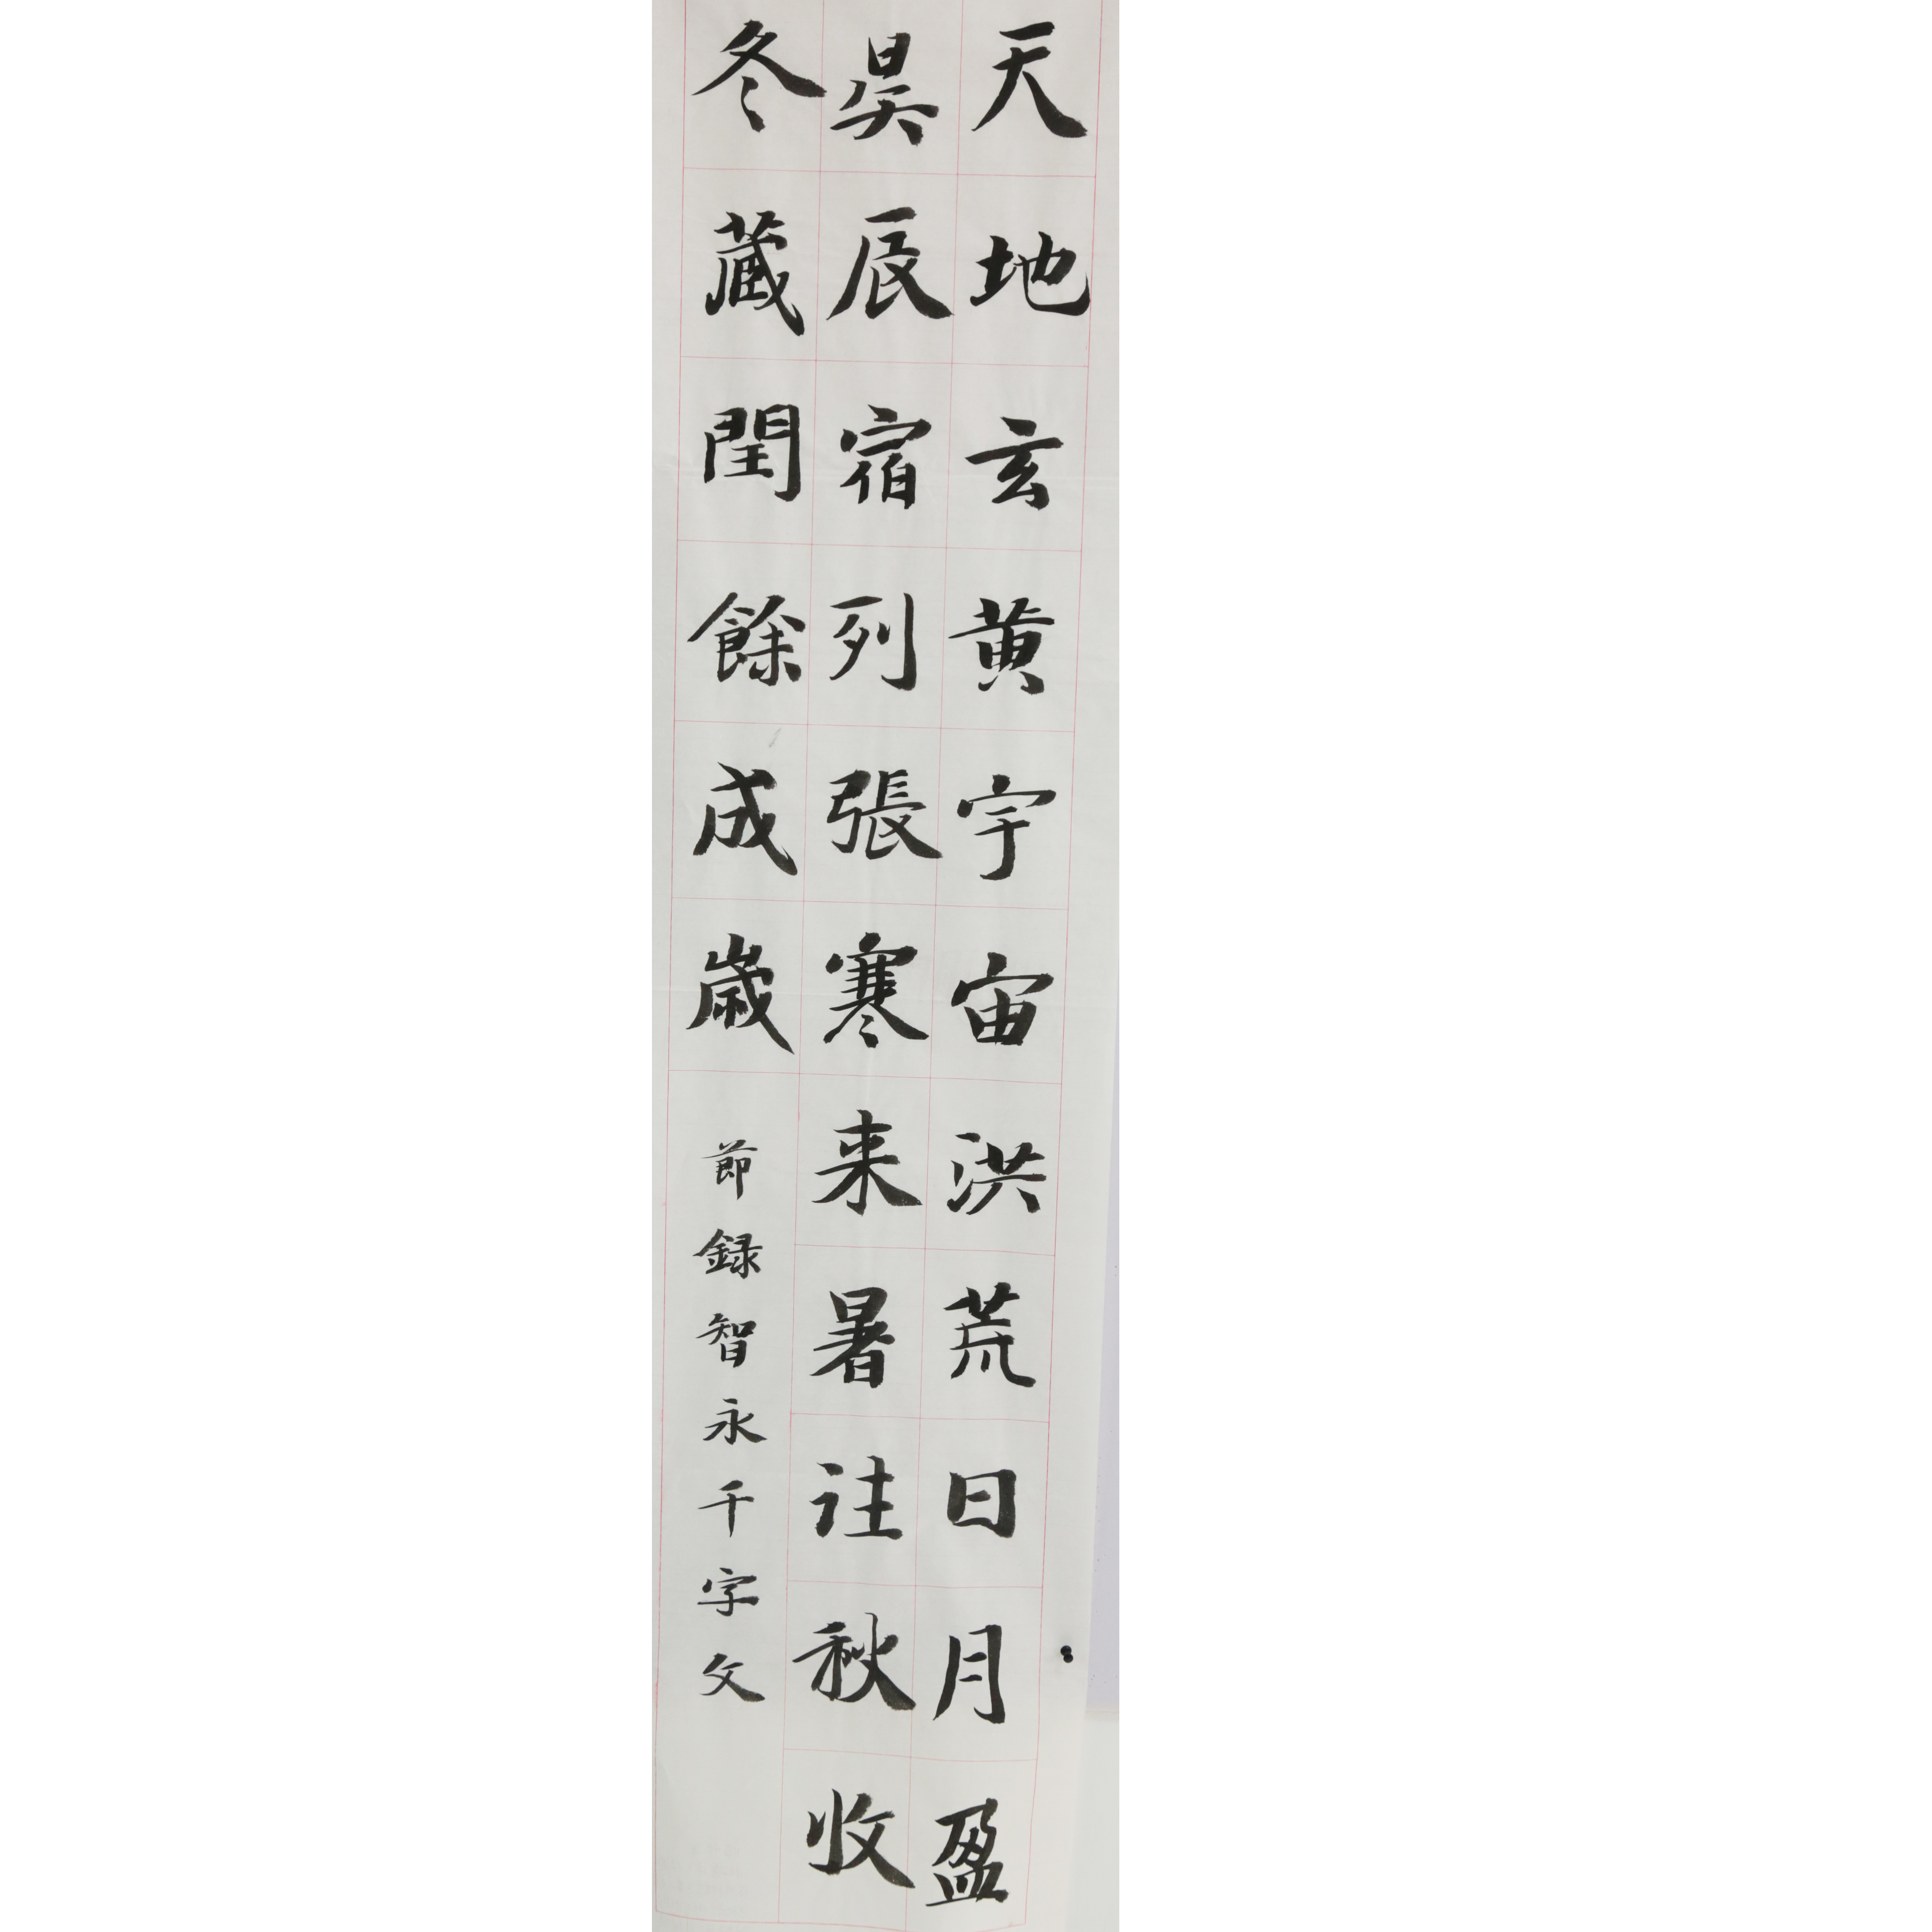 天地玄黄宇宙洪荒日月盈
昃辰宿列張寒来暑往秋收
冬藏閏餘成歲
節録智永千字文